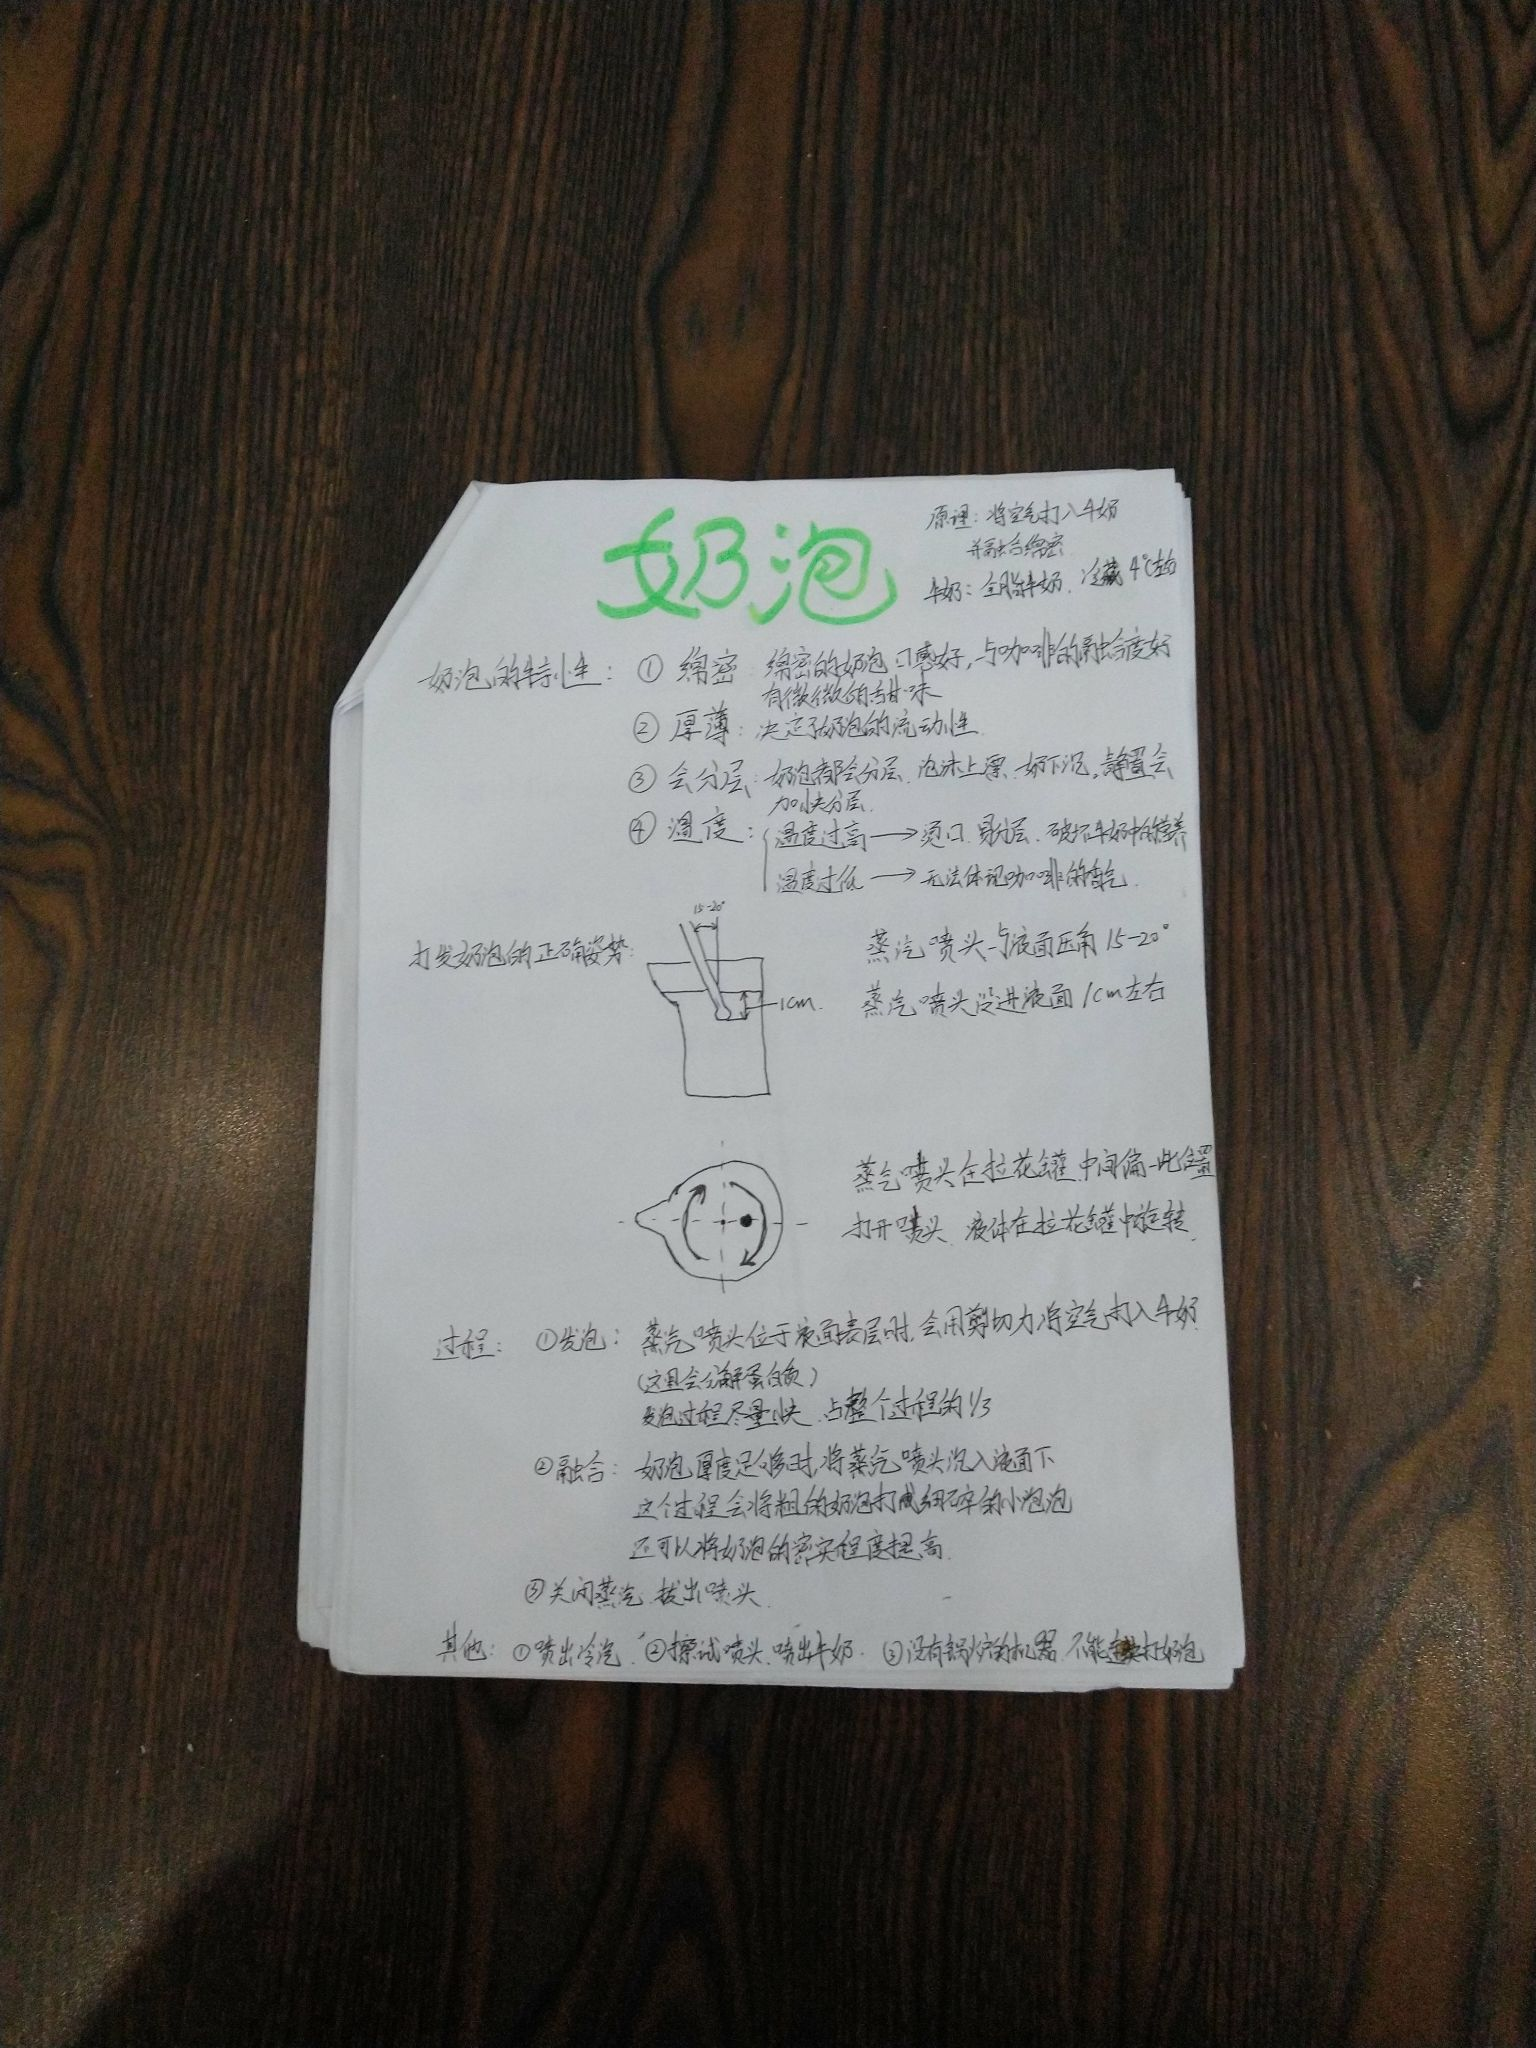 奶泡
原理：将空气打入牛奶
并融合绵密
牛奶：全脂牛奶、冷藏4℃左右
奶泡的特性：① 绵密 绵密的奶泡口感好，与咖啡的融合度好
有微微的甘味
② 厚薄：决定了奶泡的流动性
③ 会分层：奶泡都会分层、泡沫上漂、奶下沉。静置会
加快分层.
④ 温度：温度过高→烫口、易分层、破坏牛奶中的营养
温度过低→无法体现咖啡的香气.
15-20°
打发奶泡的正确姿势：
1cm.
蒸汽喷头与液面压角15-20°
蒸汽喷头没进液面1cm左右
蒸气喷头在拉花罐中间偏一此位置
打开喷头、液体在拉花罐中旋转
过程：①发泡：蒸汽喷头位于液面表层时，会用剪切力将空气打入牛奶
(这且会分解蛋白质)
发泡过程尽量快、占整个过程的1/3
②融合：奶泡厚度足够时，将蒸汽喷头沉入液面下
这个过程会将粗的奶泡打成细碎的小泡泡
还可以将奶泡的密实程度提高.
③关闭蒸汽、拔出喷头.
其他：①喷出冷汽、②擦试喷头、喷出牛奶. ③没有锅炉的机器、不能连续打奶泡